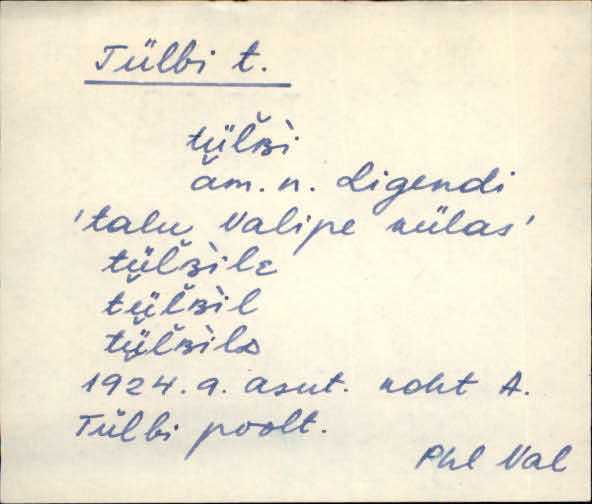 Tülbi t.
tüľʙì
äm. n. Ligendi
'talu Valipe külas'
tüľʙile
tüľʙil
tüľʙilᴅ
1924. a. asut. koht A.
Tülbi poolt.
Phl Val